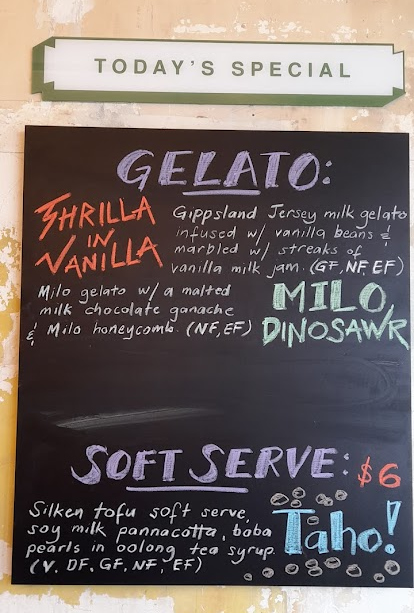 TODAY'S SPECIAL
GELATO:
THRILLA
IN
VANILLA
Gippsland Jersey milk gelato
infused w/ vanilla beans &
marbled w/ streaks of
vanilla milk jam. (GF, NF, EF)
Milo gelato w/ a malted
milk chocolate ganache
& Milo honeycomb. (NF, EF)
MILO
DINOSAWR
SOFT SERVE: $6
Silken tofu soft serve,
soy milk pannacotta, boba
pearls in oolong tea syrup.
(V, DF, GF, NF, EF)
Taho!